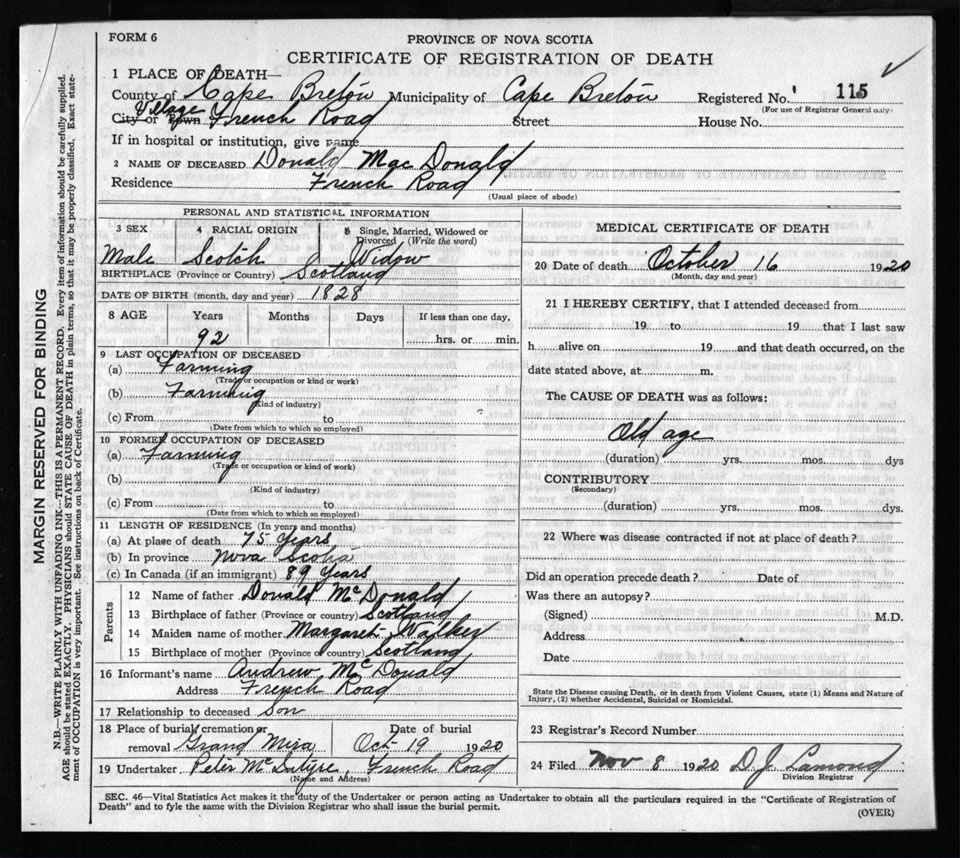 FORM 6
PROVINCE OF NOVA SCOTIA
CERTIFICATE OF REGISTRATION OF DEATH
1 PLACE OF DEATH—
County of Cape Breton Municipality of Cape Breton Registered No. 115
(For use of Registrar General only)
Village
City or Town French Road Street House No.
If in hospital or institution, give name
2 NAME OF DECEASED Donald MacDonald
Residence French Road
(Usual place of abode)
PERSONAL AND STATISTICAL INFORMATION
3 SEX 4 RACIAL ORIGIN 5 Single, Married, Widowed or
Divorced (Write the word)
Male Scotch Widow
BIRTHPLACE (Province or Country) Scotland
DATE OF BIRTH (month, day and year) 1828
8 AGE Years Months Days If less than one day,
92 hrs. or min.
9 LAST OCCUPATION OF DECEASED
(a) Farming
(Trade or occupation or kind or work)
(b) Farming
(Kind of industry)
(c) From to
(Date from which to which so employed)
10 FORMER OCCUPATION OF DECEASED
(a) Farming
(Trade or occupation or kind of work)
(b)
(Kind of industry)
(c) From to
(Date from which to which so employed)
11 LENGTH OF RESIDENCE (In years and months)
(a) At place of death 75 Years
(b) In province Nova Scotia
(c) In Canada (if an immigrant) 89 Years
Parents
12 Name of father Donald McDonald
13 Birthplace of father (Province or country) Scotland
14 Maiden name of mother Margaret Walker
15 Birthplace of mother (Province or country) Scotland
16 Informant's name Andrew McDonald
Address French Road
17 Relationship to deceased Son
18 Place of burial, cremation or Date of burial
removal Grand Mira Oct 19 1920
19 Undertaker Peter McIntyre, French Road
(Name and Address)
MEDICAL CERTIFICATE OF DEATH
20 Date of death October 16 1920
(Month, day and year)
21 I HEREBY CERTIFY, that I attended deceased from
19 to 19 that I last saw
h alive on 19 and that death occurred, on the
date stated above, at m.
The CAUSE OF DEATH was as follows:
Old age
(duration) yrs. mos. dys
CONTRIBUTORY
(Secondary)
(duration) yrs. mos. dys.
22 Where was disease contracted if not at place of death?
Did an operation precede death? Date of
Was there an autopsy?
(Signed) M.D.
Address
Date
State the Disease causing Death, or in death from Violent Causes, state (1) Means and Nature of
Injury, (2) whether Accidental, Suicidal or Homicidal.
23 Registrar's Record Number
24 Filed Nov 8 1920 D.J. Lamond
Division Registrar
SEC. 46—Vital Statistics Act makes it the duty of the Undertaker or person acting as Undertaker to obtain all the particulars required in the "Certificate of Registration of
Death" and to fyle the same with the Division Registrar who shall issue the burial permit.
(OVER)
MARGIN RESERVED FOR BINDING
N.B.—WRITE PLAINLY WITH UNFADING INK—THIS IS A PERMANENT RECORD. Every item of information should be carefully supplied.
AGE should be stated EXACTLY. PHYSICIANS should STATE CAUSE OF DEATH in plain terms, so that it may be properly classified. Exact state-
ment of OCCUPATION is very important. See instructions on back of Certificate.